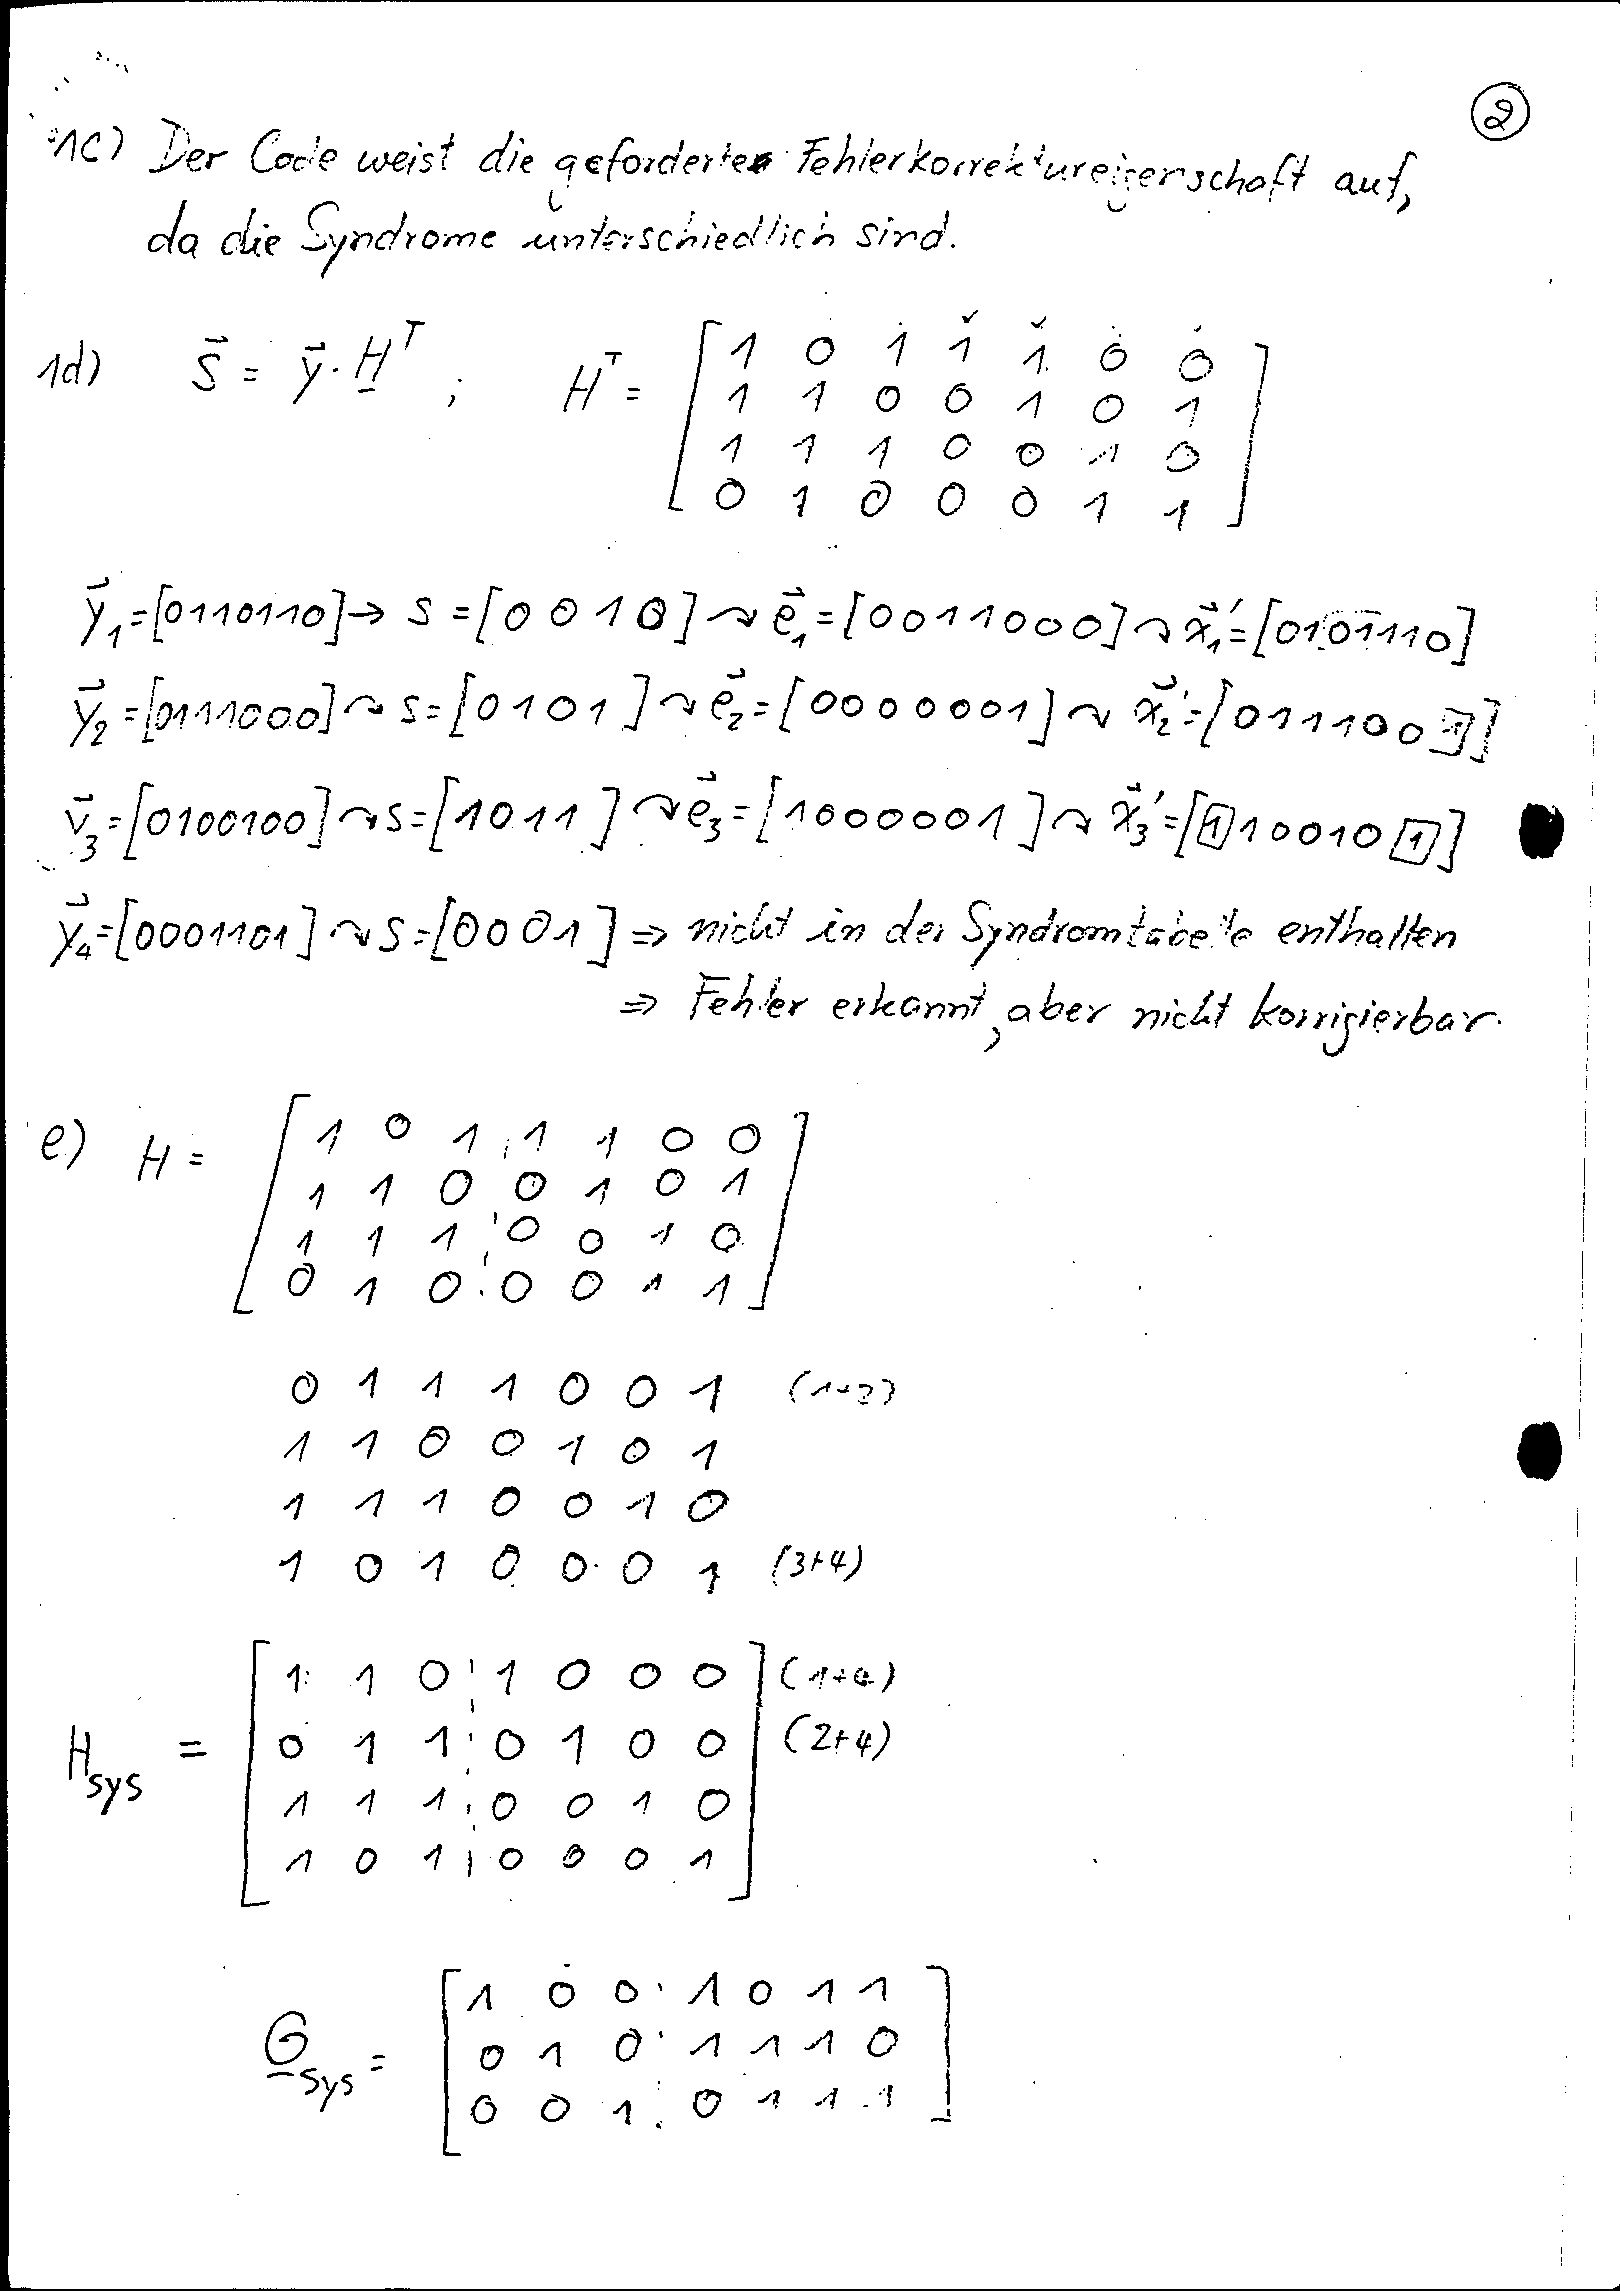 ②
1c) Der Code weist die geforderte Fehlerkorrektureigenschaft auf,
da die Syndrome unterschiedlich sind.
1d) s⃗ = y⃗ · H^T ; H^T = [ 1 0 1 1 1 0 0
1 1 0 0 1 0 1
1 1 1 0 0 1 0
0 1 0 0 0 1 1 ]
y⃗₁=[0110110] → s = [0 0 1 0] ↷ e⃗₁=[0011000] ↷ x⃗₁'=[0101110]
y⃗₂=[0111000] ↷ s=[0101] ↷ e⃗₂=[0000001] ↷ x⃗₂'=[0111001]
y⃗₃=[0100100] ↷ s=[1011] ↷ e⃗₃=[1000001] ↷ x⃗₃'=[1100101]
y⃗₄=[0001101] ↷ s=[0001] ⇒ nicht in der Syndromtabelle enthalten
⇒ Fehler erkannt, aber nicht korrigierbar.
e) H = [ 1 0 1 1 1 0 0
1 1 0 0 1 0 1
1 1 1 0 0 1 0
0 1 0 0 0 1 1 ]
0 1 1 1 0 0 1 (1+2)
1 1 0 0 1 0 1
1 1 1 0 0 1 0
1 0 1 0 0 0 1 (3+4)
H_sys = [ 1 1 0 1 0 0 0 ] (1+4)
0 1 1 0 1 0 0 (2+4)
1 1 1 0 0 1 0
1 0 1 0 0 0 1
G_sys = [ 1 0 0 1 0 1 1
0 1 0 1 1 1 0
0 0 1 0 1 1 1 ]